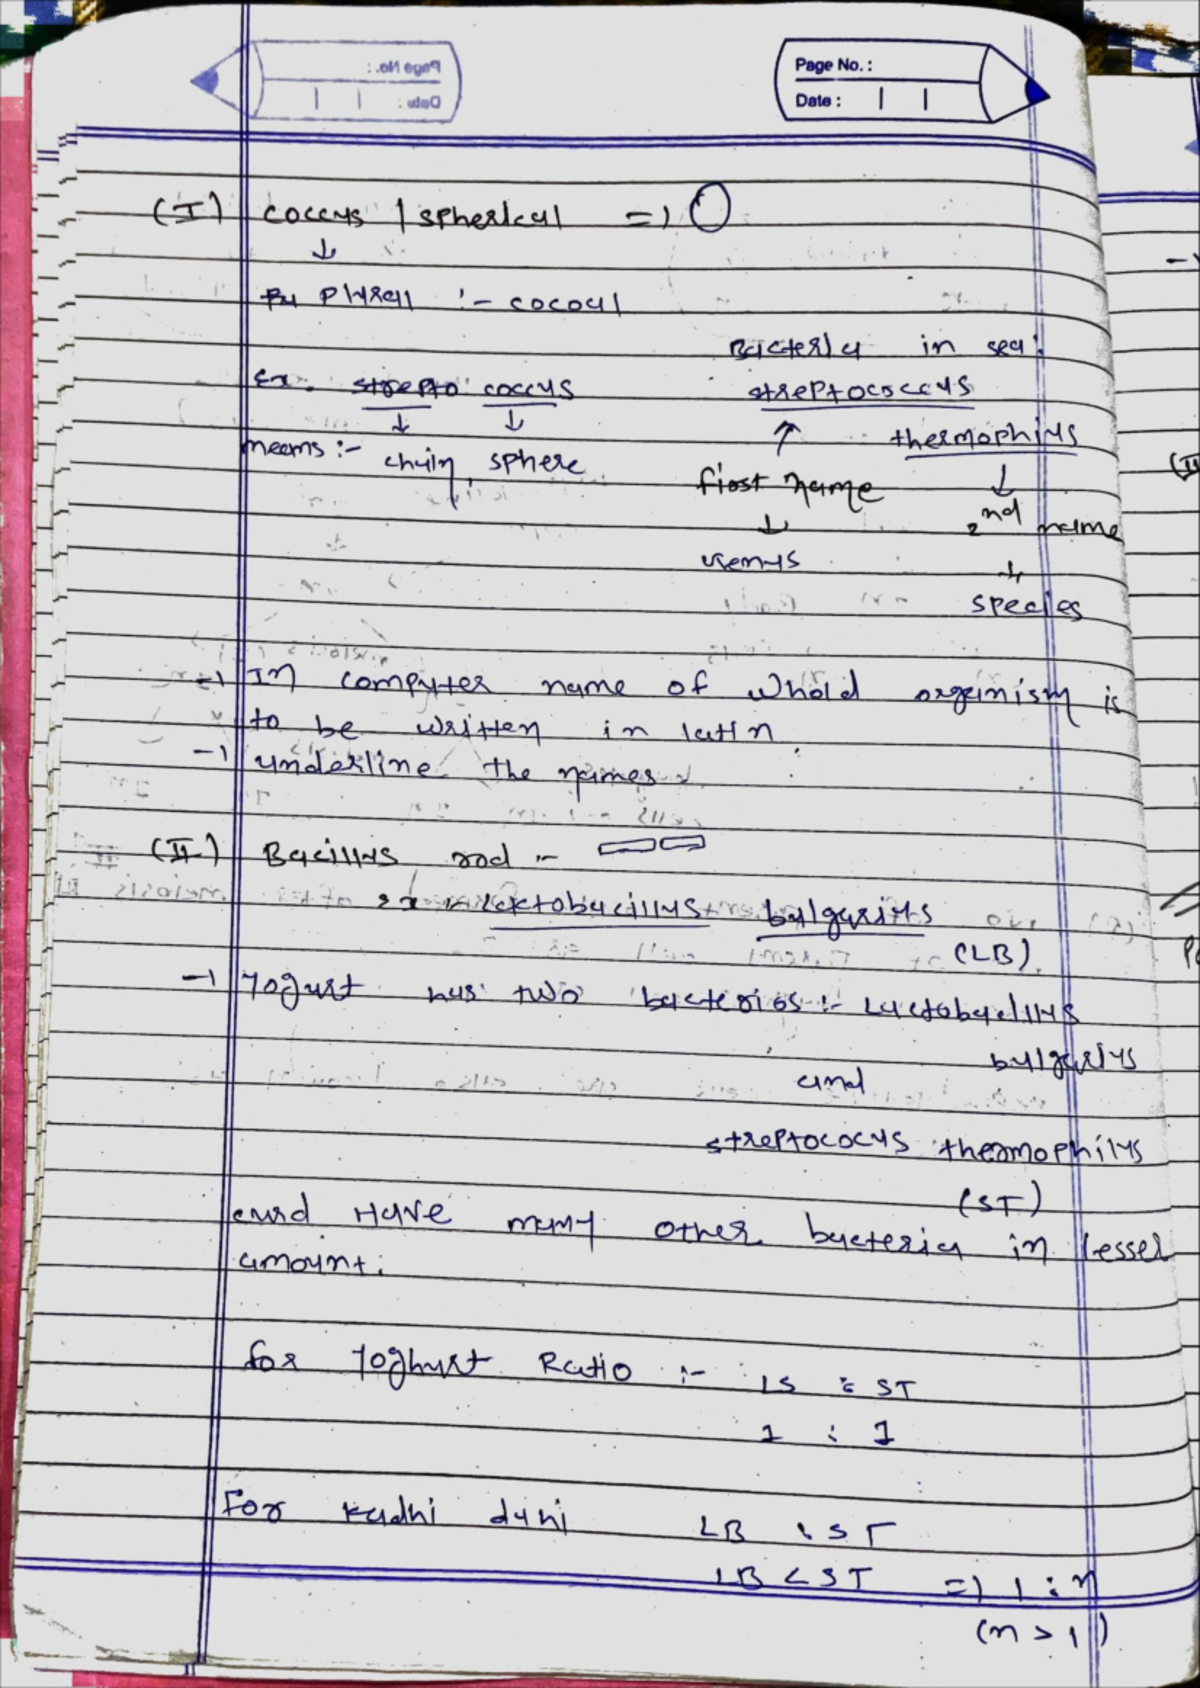 Page No. :
Date :
(I) coccus / spherical =>
plural :- cocoul
Bacteria in sea:
Ex. strepto coccus
streptococcus
means :- chain, sphere
thermophius
first name
2nd name
species
In computer name of whold organism is
to be written in latin.
underline the names
(II) Bacillus rod :-
ex :- Lactobacillus bulgarius
(LB).
Yogurt has two bacterias :- Lactobacillus
bulgarius
and
streptococus thermophilus
(ST)
curd Have many other bacteria in lesser
amount.
for Yoghurt Ratio :- LS : ST
1 : 1
For kadhi dahi LB : ST
LB < ST => 1 : n
(n > 1)